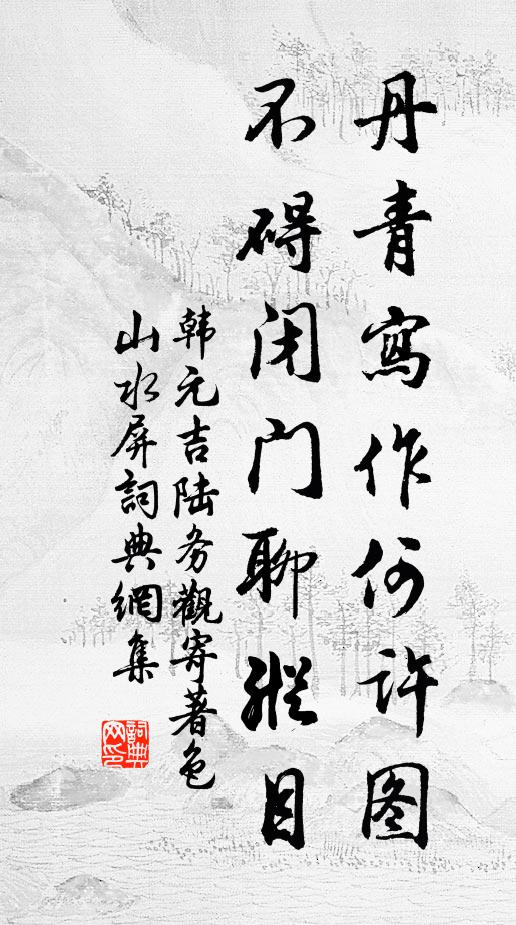 丹青寫作何许图
不碍闭门聊縱目
韩元吉陆务觀寄著色
山水屏詞典網集
詞典网印